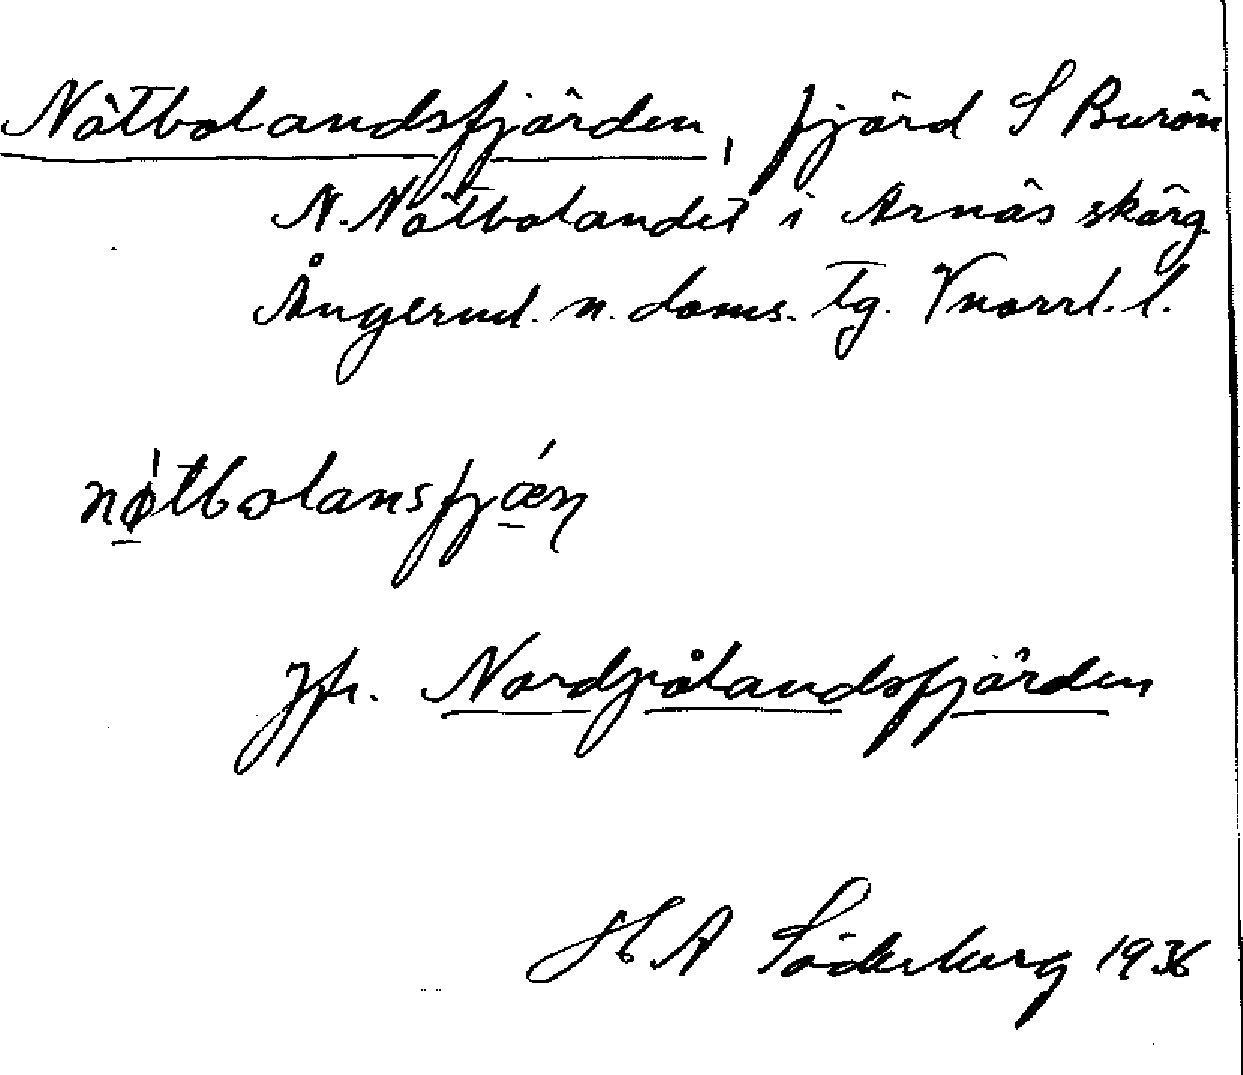 Nötbolandsfjärden, fjärd S Burön
N. Nötbolandet i Arnäs skärg.
Ångerml. n. doms. Tg. Vnorrl. l.
nø̱̍tbolansfjǽ̱ṇ
Jfr. Nordpålandsfjärden
H A Söderberg 1936